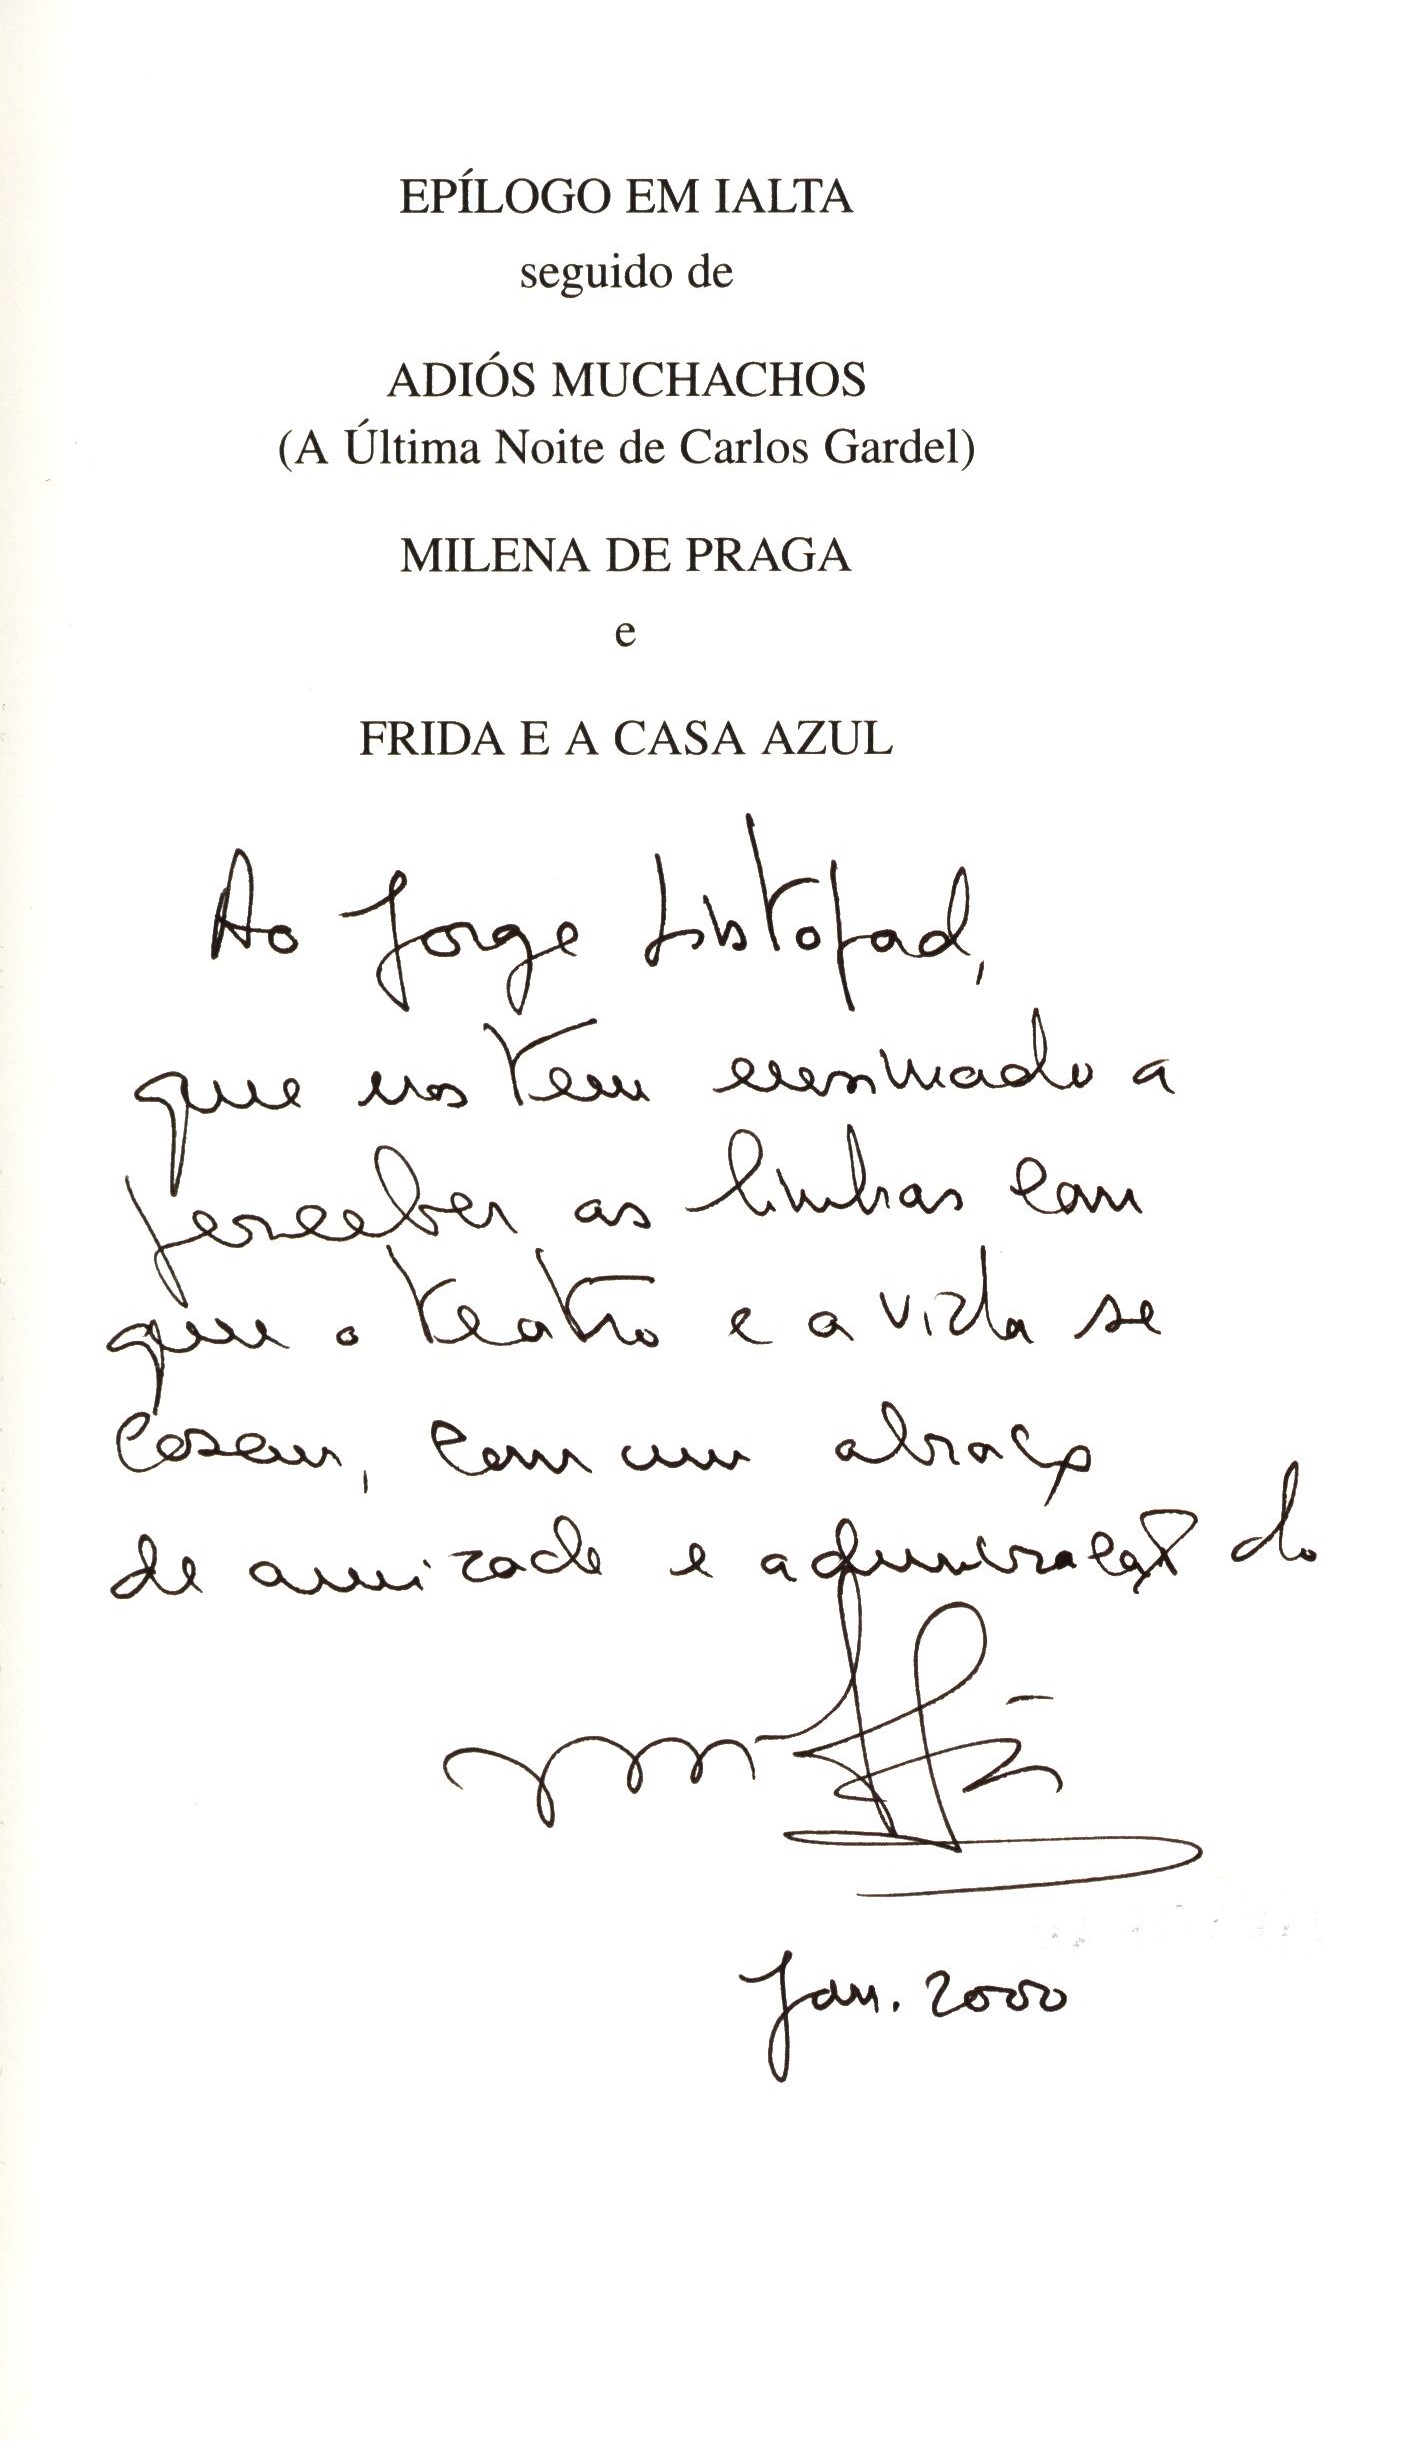 EPÍLOGO EM IALTA
seguido de
ADIÓS MUCHACHOS
(A Última Noite de Carlos Gardel)
MILENA DE PRAGA
e
FRIDA E A CASA AZUL
Ao Jorge Listopad,
que nos tem ensinado a
perceber as linhas com
que o teatro e a vida se
cosem, com um abraço
de amizade e admiração do
Jan. 2000